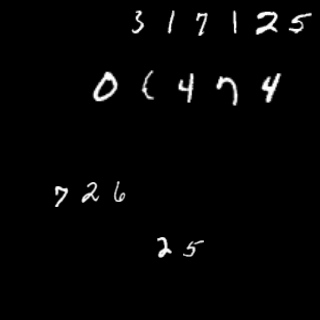 317125
01474
726
25